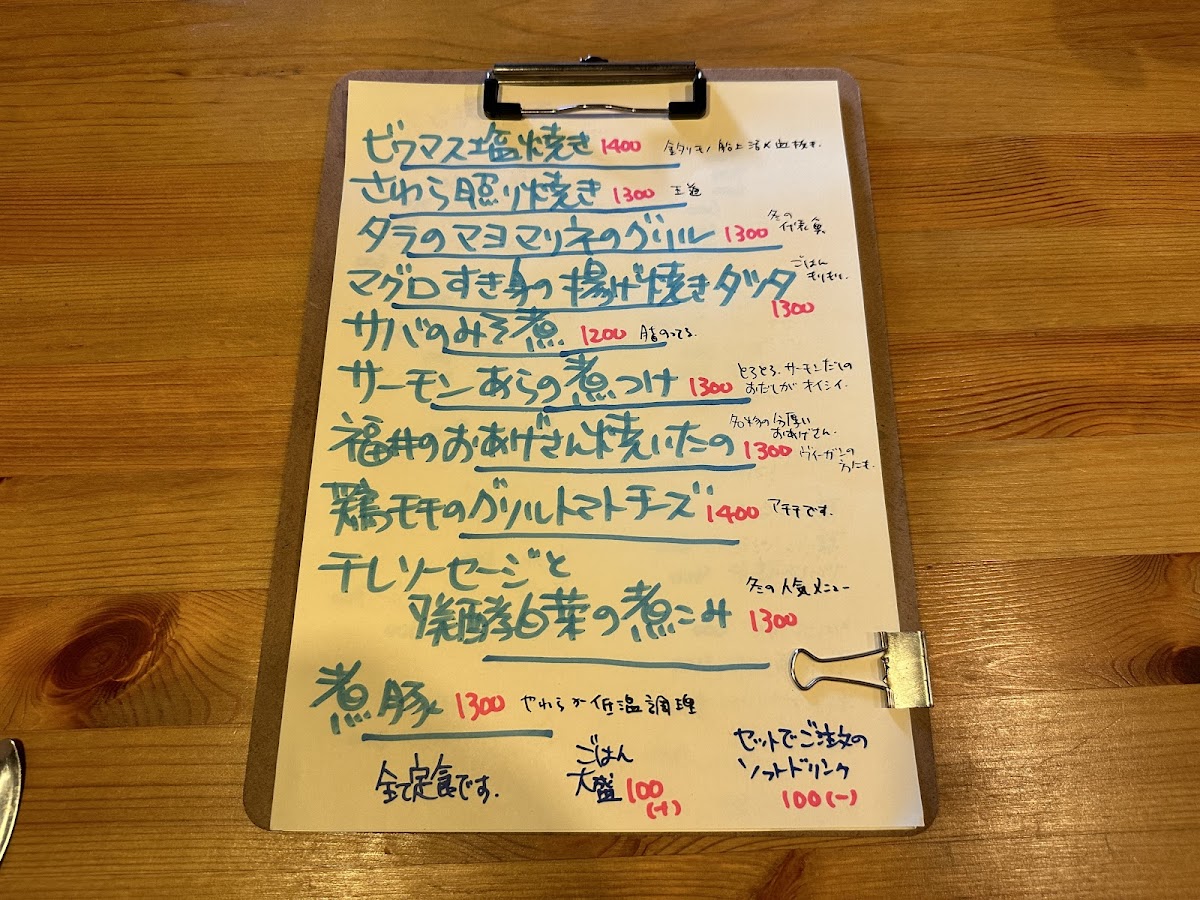 ビワマス塩焼き 1400 釣りモノ 船上活〆血抜き.
さわら照り焼き 1300 王道
タラのマヨマリネのグリル 1300 冬の
代表魚
マグロすき身の揚げ焼きダッタ ごはん
もりもり.
1300
サバのみそ煮 1200 脂のってる.
サーモンあらの煮つけ 1300 とろとろ.サーモンだしの
おだしがオイシイ.
福井のおあげさん焼いたの 1300 名物の分厚い
おあげさん.
ヴィーガンの
方にも.
鶏モモのグリルトマトチーズ 1400 アチチです.
干しソーセージと
発酵白菜の煮こみ 1300 冬の人気メニュー
煮豚 1300 やわらか低温調理
全て定食です.
ごはん
大盛 100
(+)
セットでご注文の
ソフトドリンク
100(-)